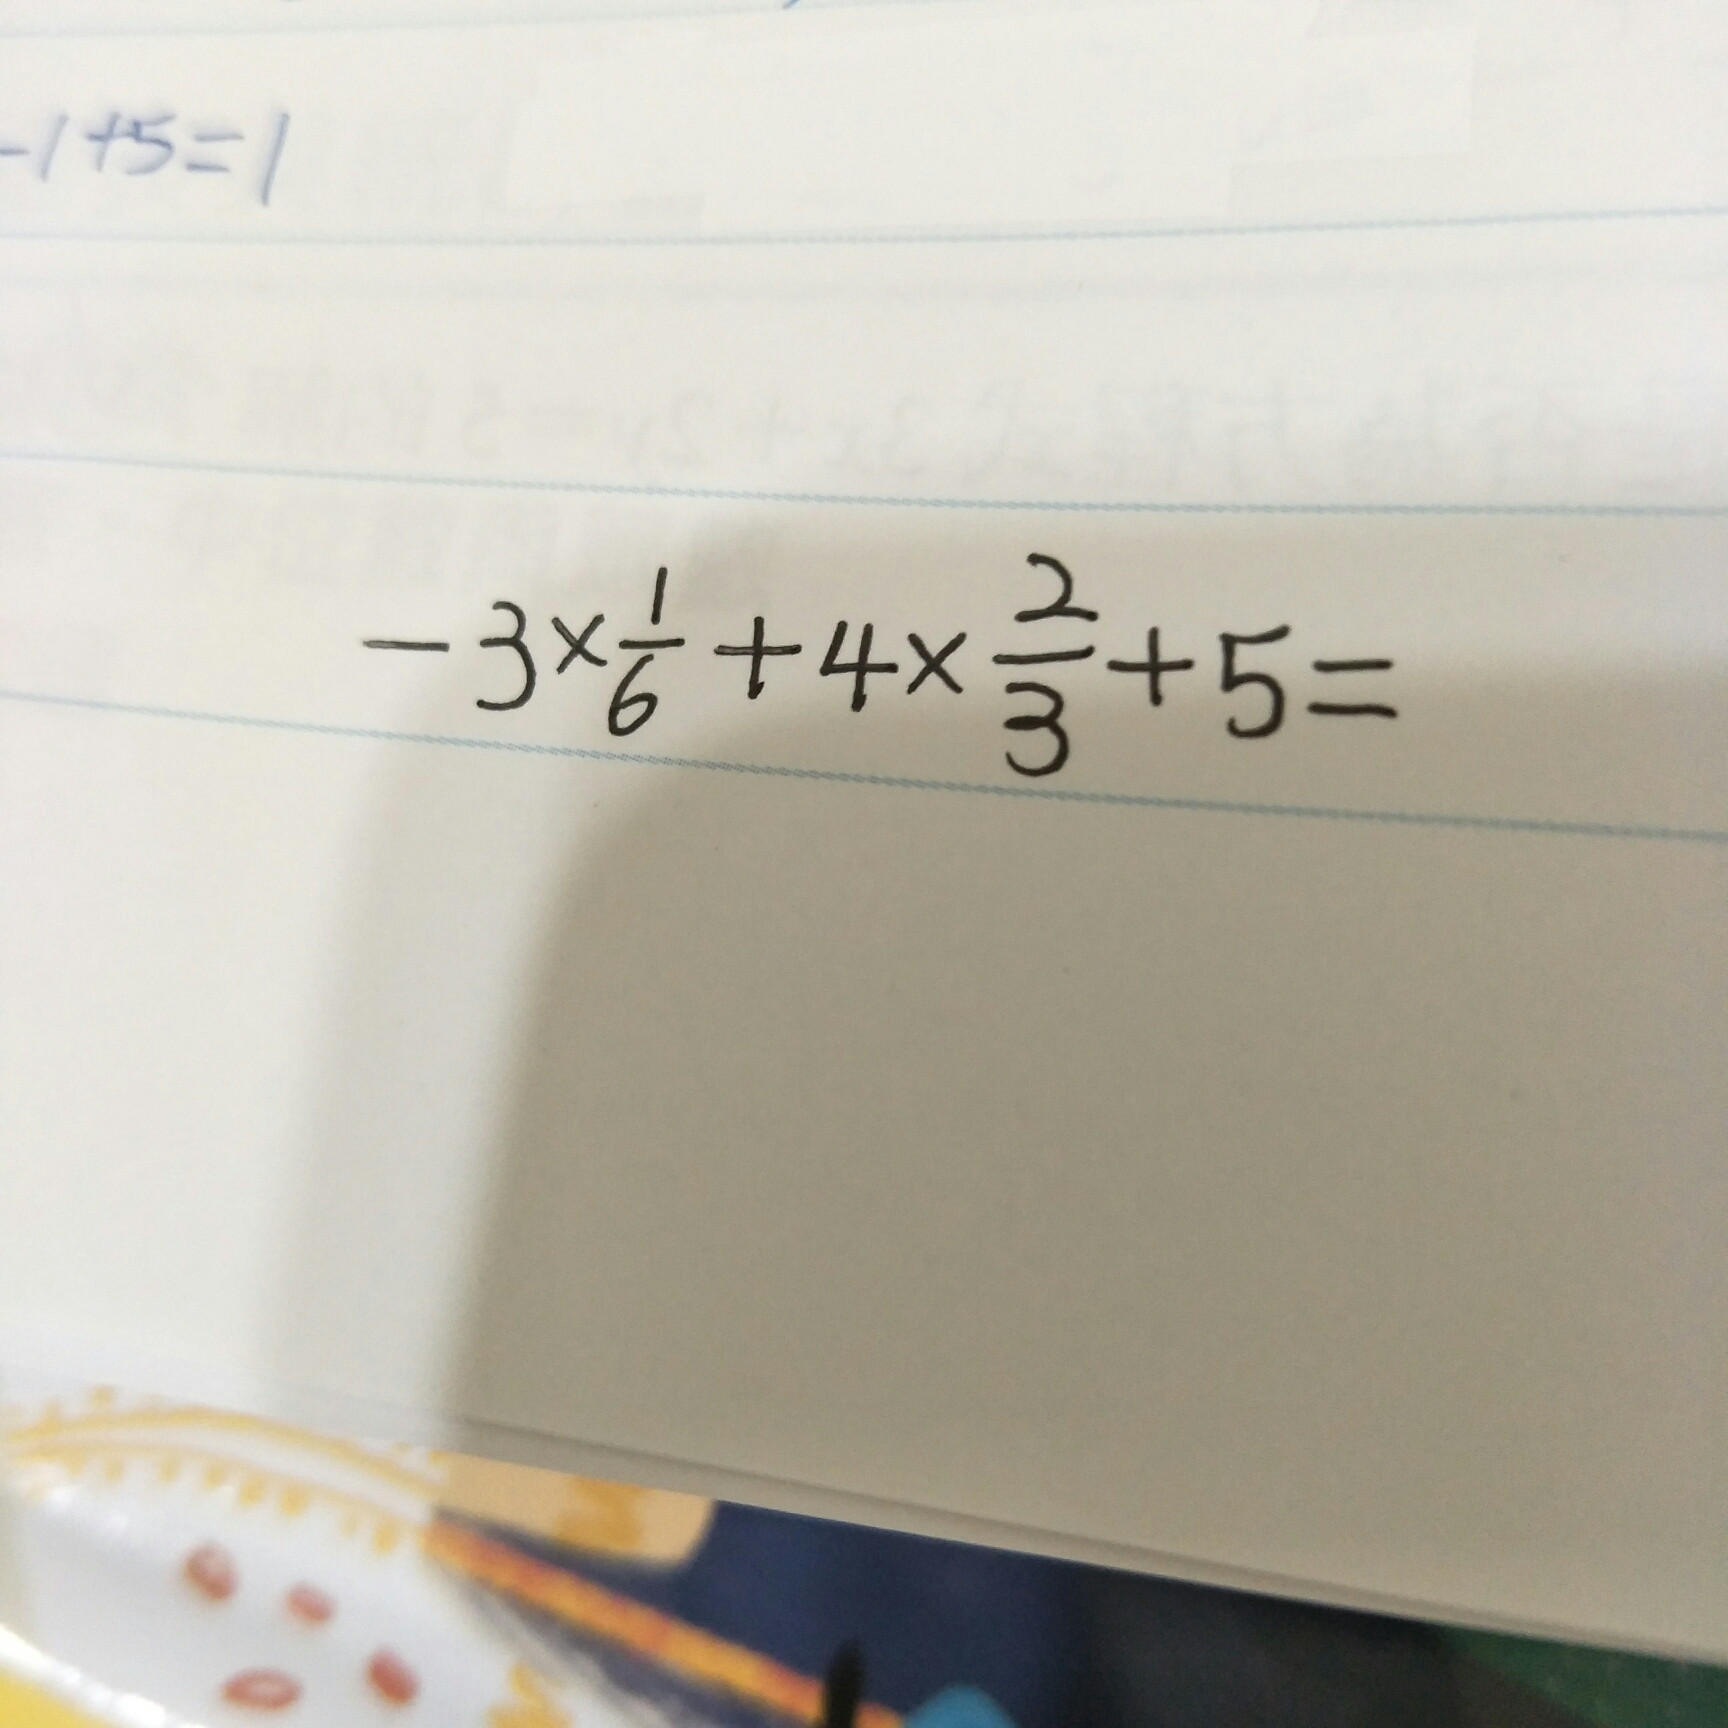 -1+5=1
-3×1/6+4×2/3+5=